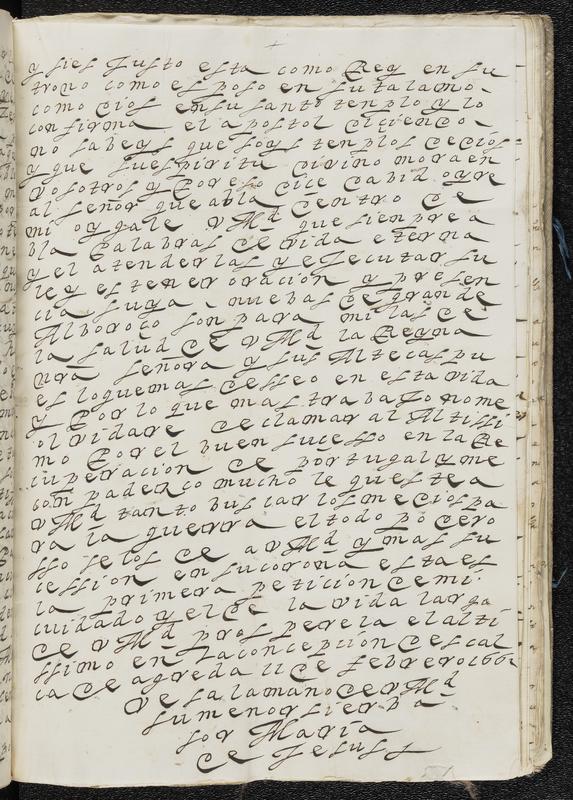 +
y si es Justo esta como Rey en su
trono como es poso en su talamo
como dios en su santo tenplo y lo
confirma el apostol diciendo
no sabeys que soys tenplos de dios
y que su espiritu divino mora en
vosotros y Por eso dice david oyre
al señor que abla dentro de
mi oygale v Md que sienpre a
bla Palabras de vida eterna
y el atenderlas y eJecutar su
ley es tener oracion y presen
cia suya nuebas de grande
Alboroço son para mi las de
la salud de v Md la Reyna
nra señora y sus Alteças pu
es lo que mas desseo en esta vida
y Por lo que mas trabaJo no me
olvidare de clamar al Altissi
mo Por el buen sucesso en la Re
cuperacion de portugal y me
conpadezco mucho de que este a
v Md tanto buscar los medios pa
ra la guerra el todo podero
sso se los de a v Md y mas su
cession en su corona esta es
la primera peticion de mi
cuidado y el de la vida larga
de v Md prosperela el alti
ssimo en la concepcion descal
ca de agreda 11 de febrero 1661
Be sa la mano de v Md
su menor sierba
sor Maria
de Jesus